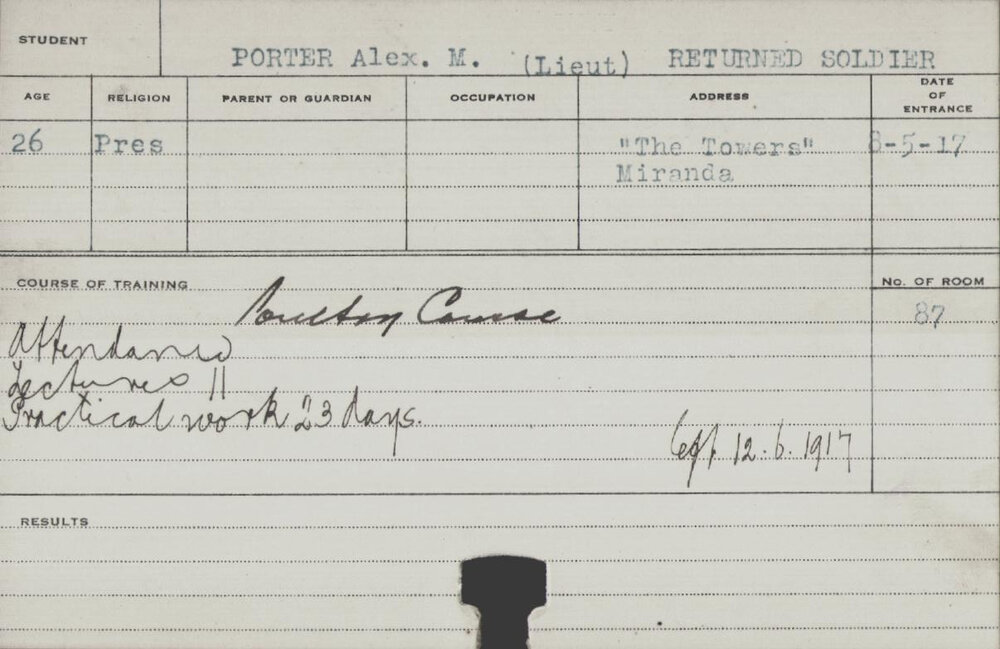 STUDENT
PORTER Alex. M. (Lieut) RETURNED SOLDIER
AGE RELIGION PARENT OR GUARDIAN OCCUPATION ADDRESS DATE OF ENTRANCE
26 Pres "The Towers" 8-5-17
Miranda
COURSE OF TRAINING No. OF ROOM
Poultry Course 87
Attendance
Lectures 11
Practical work 23 days.
Left 12.6.1917
RESULTS